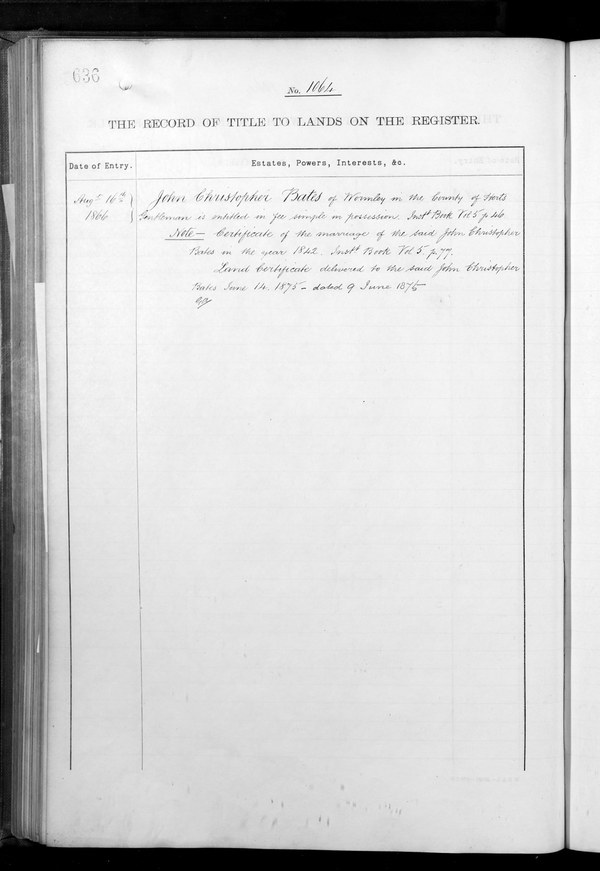 636
No. 1064
THE RECORD OF TITLE TO LANDS ON THE REGISTER.
Date of Entry.
Estates, Powers, Interests, &c.
Augt 16th
1866
John Christopher Bates of Wormley in the County of Herts
Gentleman is entitled in fee simple in possession. Inst Book Vol 5 p 46
Note — Certificate of the marriage of the said John Christopher
Bates in the year 1842. Inst Book Vol 5. p 77.
Land Certificate delivered to the said John Christopher
Bates June 14. 1875 - dated 9 June 1875